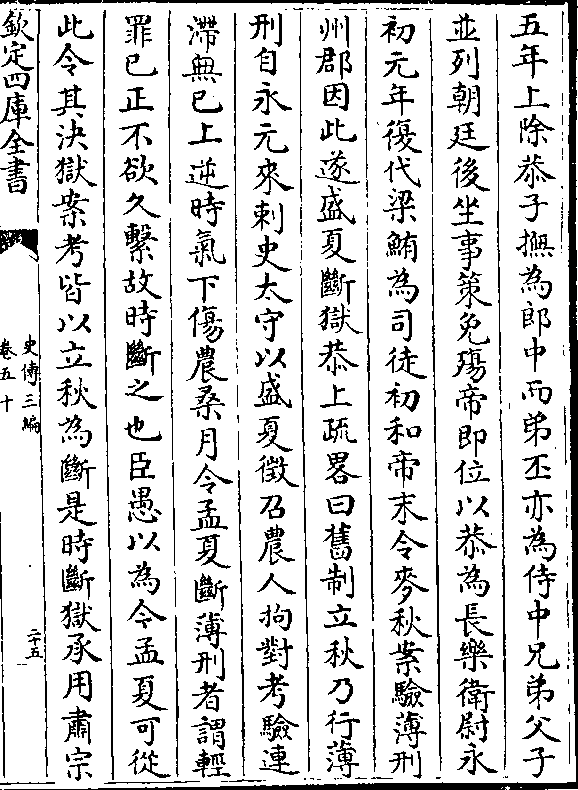 五年上除恭子撫為郎中而弟丕亦為侍中兄弟父子
並列朝廷後坐事策免殤帝即位以恭為長樂衛尉永
初元年復代梁鮪為司徒初和帝末令麥秋案驗薄刑
州郡因此遂盛夏斷獄恭上疏畧曰舊制立秋乃行薄
刑自永元來刺史太守以盛夏徵召農人拘對考驗連
滯無已上逆時氣下傷農桑月令孟夏斷薄刑者謂輕
罪已正不欲久繫故時斷之也臣愚以為今孟夏可從
此令其決獄案考皆以立秋為斷是時斷獄承用肅宗
欽定四庫全書
史傳三編
卷五十
二十五